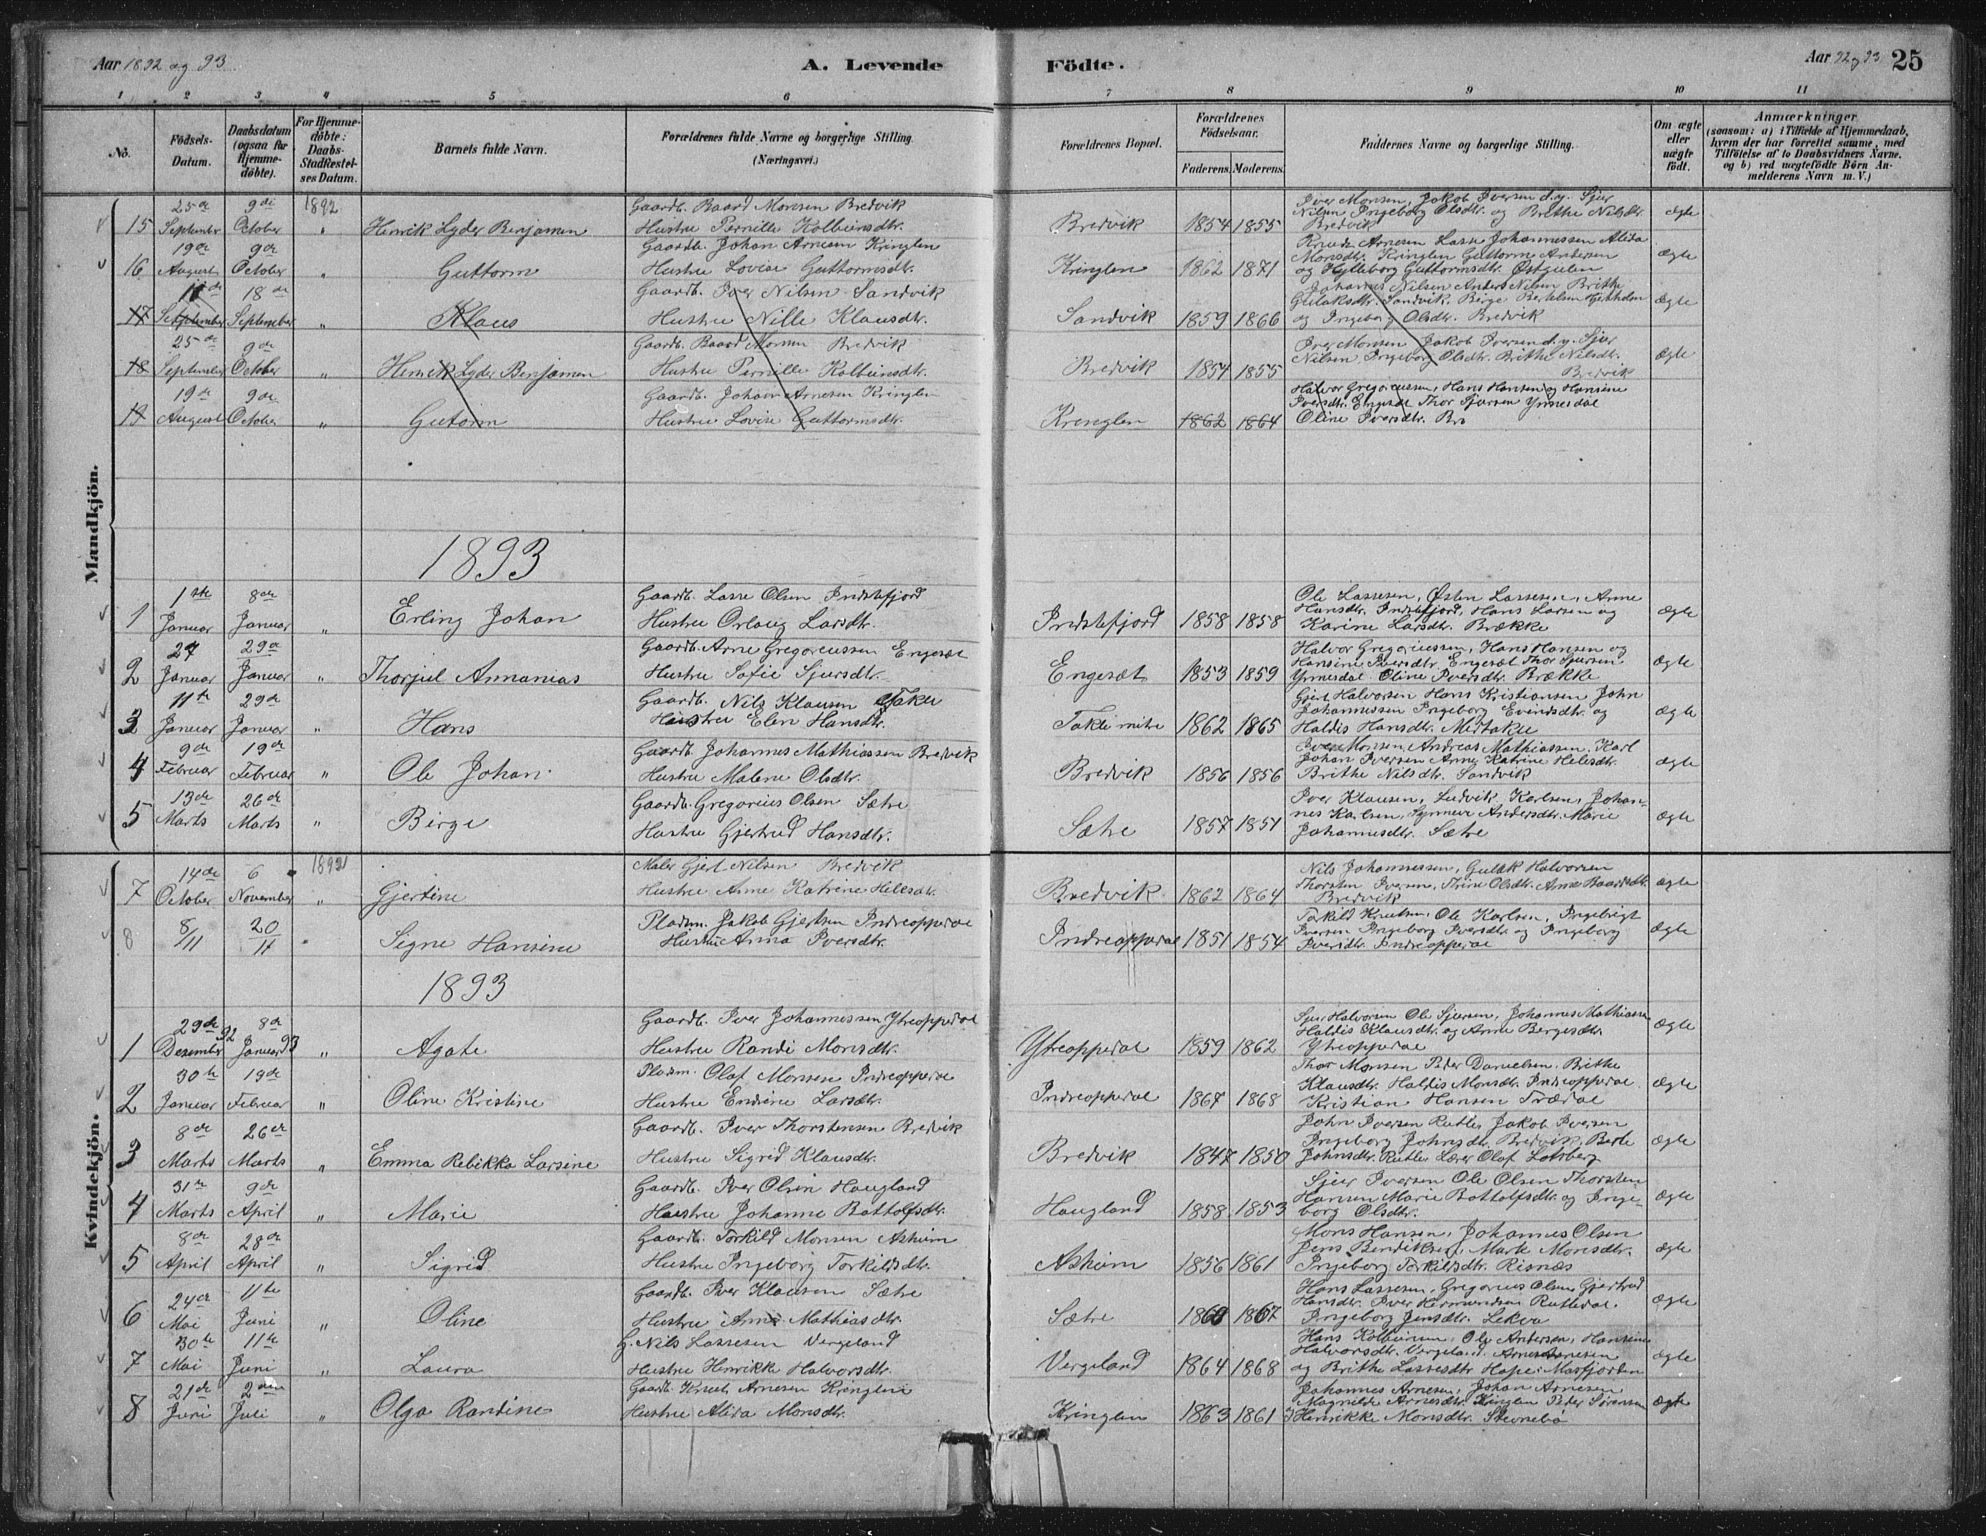 Aar 1892 og 93. A. Levende Födte. Aar 92 og 93 25
1 2 3 4 5 6 7 8 9 10 11
No. Födsels-Datum. Daabsdatum (ogsaa for Hjemmedöbte). For Hjemmedöbte: Daabs-Stadfæstelses Datum. Barnets fulde Navn. Forældrenes fulde Navne og borgerlige Stilling. (Næringsvei.) Forældrenes Bopæl. Forældrenes Födselsaar. Faderens. Moderens. Faddernes Navne og borgerlige Stilling. Om ægte eller uægte födt. Anmærkninger (saasom: a) i Tilfælde af Hjemmedaab, hvem der har forrettet samme, med Tilföielse af to Daabsvidners Navne. og b) ved uægtefödte Börn Anmelderens Navn m. V.)
Mandkjön.
1892
15 25de September 9de October " Henrik Lyder Benjamen Gaardb. Baard Monsen Bredvik
Hustru Pernille Kolbeinsdtr. Bredvik 1854 1855 Iver Monsen, Jakob Iversen d.y. Sjur
Nilsen, Ingeborg Olsdtr. og Brithe Nilsdtr.
Bredvik ægte
16 19de August 9de October " Guttorm Gaardb. Johan Arnesen Kringlen
Hustru Lovise Guttormsdtr. Kringlen 1862 1871 Knud Arnesen Lasse Johannessen Alida
Monsdtr. Kringlen Guttorm Andersen
og Hylleborg Guttormsdtr. Østgulen ægte
17 September 18de September " Klaus Gaardb. Iver Nilsen Sandvik
Hustru Nille Klausdtr. Sandvik 1859 1866 Johannes Nilsen Anders Nilsen Brithe
Gulaksdtr. Sandvik Børge Bertelsen
og Ingeborg Olsdtr. Bredvik Ægte
18 25de September 9de October " Henrik Lyder Benjamen Gaardb. Baard Monsen Bredvik
Hustru Pernille Kolbeinsdtr. Bredvik 1854 1855 Iver Monsen Jakob Iversen d.y. Sjur
Nilsen Ingeborg Olsdtr. Brithe Nilsdtr.
Bredvik Ægte
19 19de August 9de October " Gutorm Gaardb. Johan Arnesen Kringlen
Hustru Lovise Guttormsdtr. Kringlen 1862 1864 Halvor Gregoriussen, Hans Hansen og Hansine
Iversdtr. Engesæt Thor Sjursen Ynnesdal
Oline Iversdtr. Bre
1893
1 1ste Januar 8de Januar " Erling Johan Gaardb. Lasse Olsen Indrefjord
Hustru Orlaug Larsdtr. Indrefjord 1858 1858 Ole Lassesen, Østen Lassesen, Anne
Hansdtr. Indrefjord, Hans Larsen og
Karine Larsdtr. Brække ægte
2 27 Januar 29de Januar " Thorjul Annanias Gaardb. Arne Gregoriussen Engesæt
Hustru Sofie Sjursdtr. Engesæt 1853 1859 Halvor Gregoriussen, Hans Hansen og
Hansine Iversdtr. Engesæt Thor Sjursen
Ynnesdal Oline Iversdtr. Brække Ægte
3 11te Januar 29de Januar " Hans Gaardb. Nils Klausen Takle
Hustru Elen Hansdtr. Takle mitre 1862 1865 Gjert Halvorsen Hans Kristiansen John
Johannessen Ingeborg Evindsdtr. og
Haldis Hansdtr. Midtakle Ægte
4 9de Februar 19de Februar " Ole Johan Gaardb. Johannes Mathiassen Bredvik
Hustru Malene Olsdtr. Bredvik 1856 1856 Iver Monsen, Andreas Mathiassen, Karl
Johan Iversen Anne Katrine Helesdtr.
Brithe Nilsdtr. Sandvik ægte
5 13de Marts 26de Marts " Birge Gaardb. Gregorius Olsen Sætre
Hustru Gjertrud Hansdtr. Sætre 1857 1851 Iver Klausen, Ludvik Karlsen, Johan-
nes Karlsen, Synneve Andersdtr. Marie
Johannesdtr. Sætre ægte
Kvindekjön.
1892
7 14de October 6 November " Gjertine Maler Gjert Nilsen Bredvik
Hustru Anne Katrine Helesdtr. Bredvik 1862 1864 Nils Johannessen, Gulak Halvorsen
Thorsten Iversen, Thrine Olsdtr. Anna Baardsdtr.
Bredvik ægte
8 8/11 20/11 " Signe Hansine Pladsm. Jakob Gjertsen Indreoppedal
Hustru Anna Iversdtr. Indreoppedal 1851 1854 Torkild Knutsen, Ole Karlsen, Ingebrigt
Iversen Ingeborg Iversdtr. og Ingeborg
Iversdtr. Indreoppedal ægte
1893
1 29de Desember 92 8de Januar 93 " Agate Gaardb. Iver Johannessen Ytreoppedal
Hustru Randi Monsdtr. Ytreoppedal 1859 1862 Sjur Halvorsen Ole Sjursen, Johannes Mathiassen
Haldis Klausdtr. og Anne Bergesdtr.
Ytreoppedal Ægte
2 30te Januar 19de Februar " Oline Kristine Pladsm. Olaf Monsen Indreoppedal
Hustru Endrine Larsdtr. Indreoppedal 1867 1868 Thor Monsen Peder Danielsen, Brithe
Klausdtr. Haldis Monsdtr. Indreoppedal
Kristian Hansen Trædal Ægte
3 8de Marts 26de Marts " Emma Rebikka Larsine Gaardb. Iver Thorstensen Bredvik
Hustru Sigrid Klausdtr. Bredvik 1847 1850 John Iversen Rutle, Jakob Iversen
Ingeborg Johnsdtr. Bredvik, Berte
Johnsdtr. Rutle Lærer Olaf Losberg Ægte
4 31te Marts 9de April " Marie Gaardb. Iver Olsen Haugland
Hustru Johanne Bottolfsdtr. Haugland 1858 1853 Sjur Iversen Ole Olsen Thorsten
Hansen Marie Bottolfsdtr. og Inge-
borg Olsdtr. Ægte
5 8de April 28de April " Sigrid Gaardb. Torkild Monsen Asheim
Hustru Ingeborg Torkildsdtr. Asheim 1856 1861 Mons Hansen, Johannes Olsen
Jens Bendiksen, Marte Monsdtr.
Ingeborg Torkildsdtr. Risnæs ægte
6 24de Mai 11te Juni " Oline Gaardb. Iver Klausen Sætre
Hustru Anne Mathiasdtr. Sætre 1860 1867 Hans Lassesen, Gregorius Olsen Gjertrud
Hansdtr. Iver Hermundsen Rutledal
Ingeborg Jensdtr. Lekva Ægte
7 30te Mai 11te Juni " Laura G. Nils Lassesen Vergeland
Hustru Henrikke Halvorsdtr. Vergeland 1864 1868 Hans Kolbeinsen, Ole Andersen, Hansine
Halvorsdtr. Vergeland, Arne Arnesen
og Brithe Lassesdtr. Hope i Masfjorden ægte
8 21de Juni 2den Juli " Olga Randine Gaardb. Knut Arnesen Kringlen
Hustru Alida Monsdtr. Kringlen 1863 1861 Johannes Arnesen, Johan Arnesen
Magnilde Arnesdtr. Kringlen Peder Sørensen
Henrikke Monsdtr. Stevnebø ægte